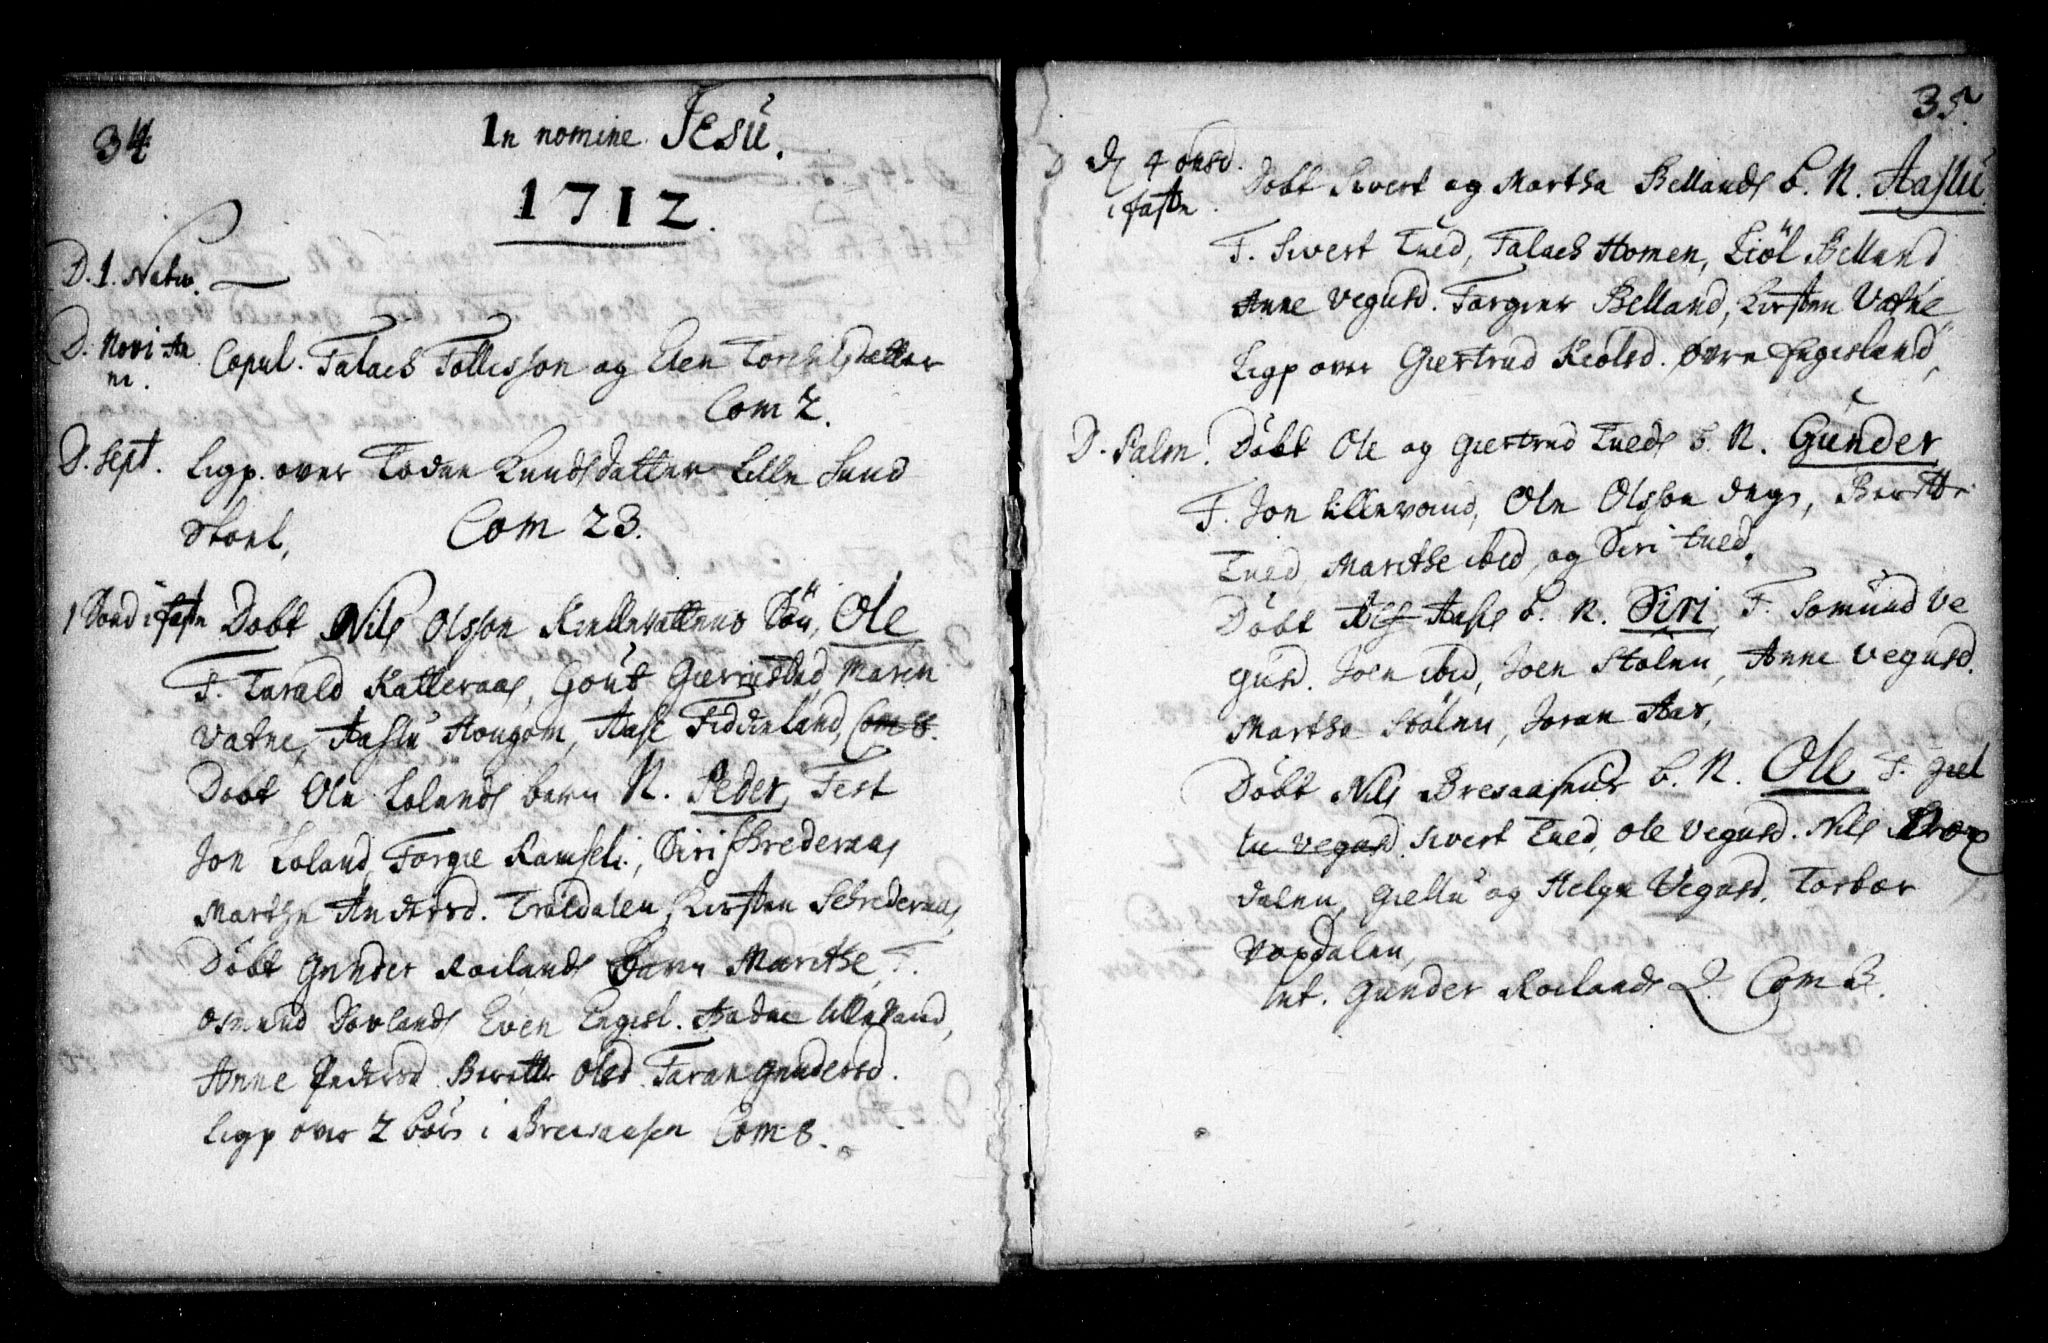 34
In nomine Jesu.
1712.
D. 1. Nativ.
D. Novi An
ni. Copul. Talach Tollisson og Elen Torchilsdatter
Com 2.
D. Sept. Ligp. over Todne Knudsdatter Lille Sund
Stoel, Com 23.
1 Sønd i faste Døbt Nils Olsson Kielleva​ttens Søn, Ole
F. Tarald Kalleraas, Gout Gierrustad, Maren
Vatne, Aaslu Hougom, Aase Fiddieland, Com 8.
Døbt Ole Lolands barn N. Peder, Test
Jon Loland, Torgie Ramsel., Siri Schrederaas
Marthe Andersd. Traldalen, Kirsten Schrederaas,
Døbt Gunder Roilands Barn Marithe, F.
Osmund Dovlands Even Engesl. Aadne Lillevand,
Anne Pedersd. Berette Olsd. Taran Gundersd.
Ligp over 2 børn i Breisaasen Com 8.
35.
D 4 onsd.
i faste. Døbt Sivert og Martha Bellands b. N. Aaslu.
F. Sivert Tued, Talach Homen, Kiøl Belland,
Anne Vegusd. Torgier Belland, Kirsten Vatne
Ligp over Giertrud Kiølsd. øvre Engesland,
D. Palm. Døbt Ole og Giertrud Tueds b. N. Gunder
F. Jon Lillevand, Ole Olsson degn, Berette
Tued, Marithe ibid, og Siri Tued.
Døbt Alf Aases b. N. Siri, F. Somund Ve
gusd. Joen ibid, Joen Stølen, Anne Vegusd.
Martha Stølen, Joran Aas,
Døbt Nils Breisaasens b. N. Ole F. Giel
lu Vegusd. Sivert Tued, Ole Vegusd. Nils
dalen, Giellu og Helge Vegusd. Torbor
Vaxdalen,
Int. Gunder Roilands Q. Com 8.